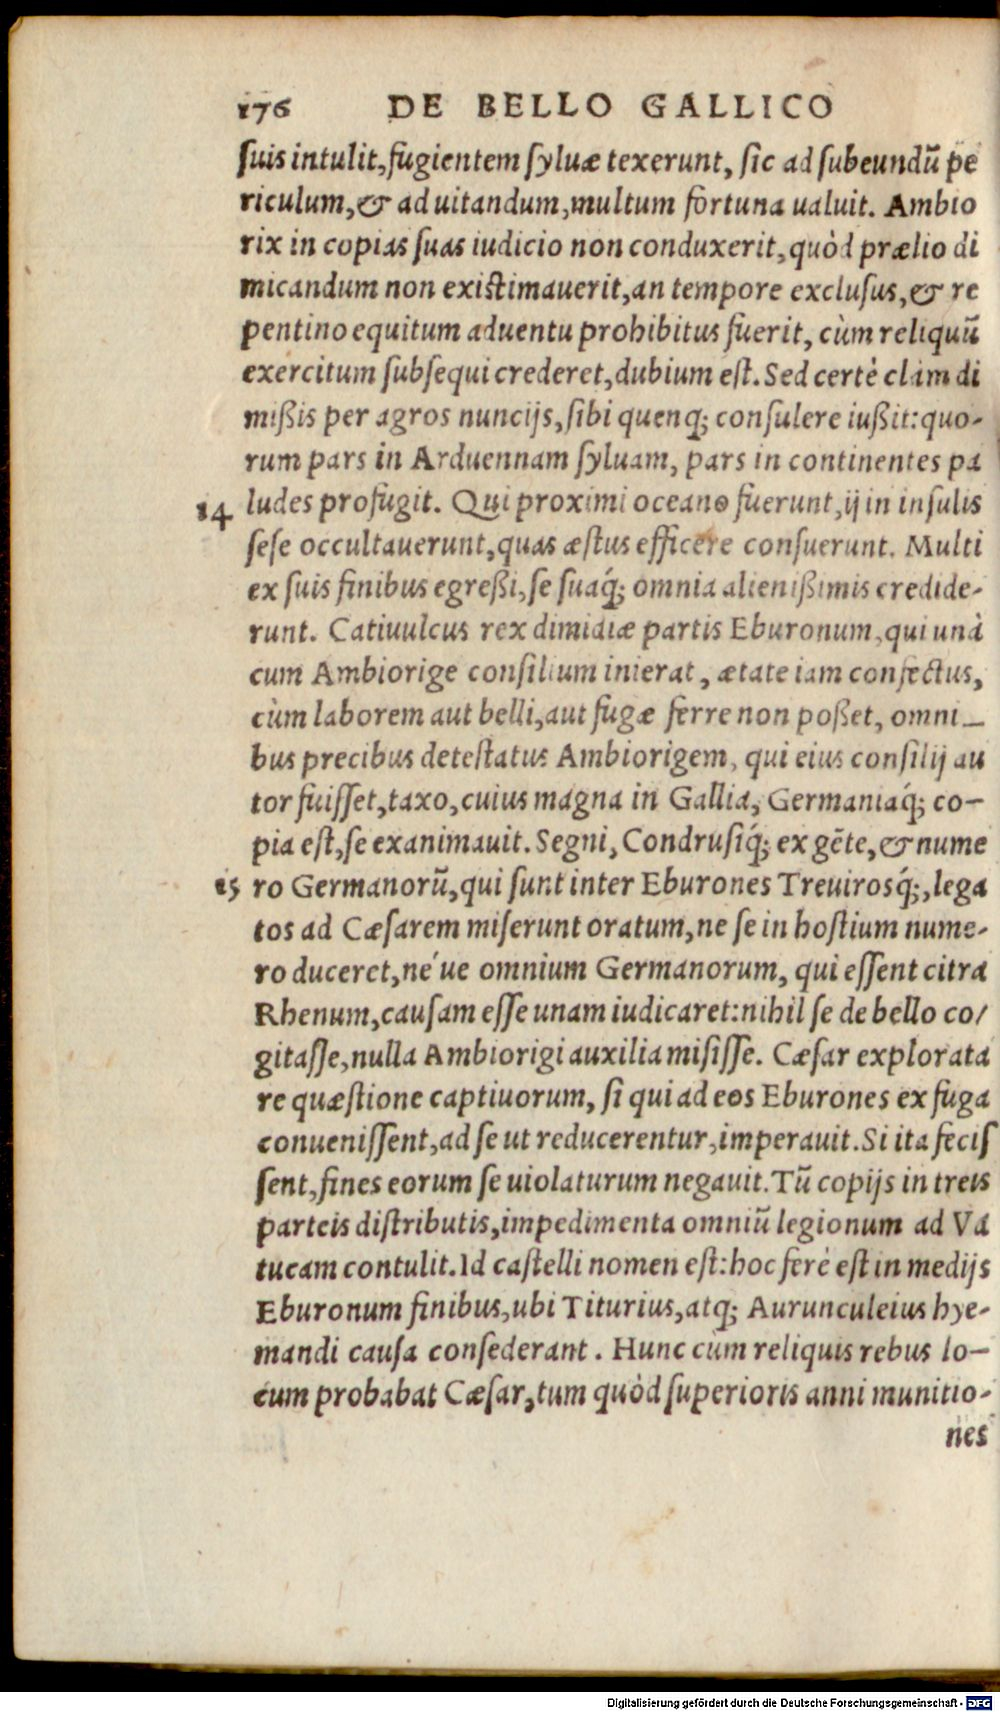 176 DE BELLO GALLICO
ſuis intulit, fugientem ſyluæ texerunt, ſic ad ſubeundũ pe
riculum, & ad uitandum, multum fortuna ualuit. Ambio
rix in copias ſuas iudicio non conduxerit, quòd prælio di
micandum non exiſtimauerit, an tempore excluſus, & re
pentino equitum aduentu prohibitus fuerit, cùm reliquũ
exercitum ſubſequi crederet, dubium eſt. Sed certè clàm di
mißis per agros nuncijs, ſibi quenq; conſulere iußit: quo-
rum pars in Arduennam ſyluam, pars in continentes pa
14 ludes profugit. Qui proximi oceano fuerunt, ij in inſulis
ſeſe occultauerunt, quas æſtus efficere conſuerunt. Multi
ex ſuis finibus egreßi, ſe ſuaq́; omnia alienißimis credide-
runt. Catiuulcus rex dimidiæ partis Eburonum, qui unà
cum Ambiorige conſilium inierat, ætate iam confectus,
cùm laborem aut belli, aut fugæ ferre non poßet, omni-
bus precibus deteſtatus Ambiorigem, qui eius conſilij au
tor fuiſſet, taxo, cuius magna in Gallia, Germaniaq́; co-
pia eſt, ſe exanimauit. Segni, Condruſiq́; ex gẽte, & nume
15 ro Germanorũ, qui ſunt inter Eburones Treuirosq́;, lega
tos ad Cæſarem miſerunt oratum, ne ſe in hoſtium nume-
ro duceret, né ue omnium Germanorum, qui eſſent citra
Rhenum, cauſam eſſe unam iudicaret: nihil ſe de bello co/
gitaſſe, nulla Ambiorigi auxilia miſiſſe. Cæſar explorata
re quæſtione captiuorum, ſi qui ad eos Eburones ex fuga
conueniſſent, ad ſe ut reducerentur, imperauit. Si ita feciſ
ſent, fines eorum ſe uiolaturum negauit. Tũ copijs in treis
parteis diſtributis, impedimenta omniũ legionum ad Va
tucam contulit. Id caſtelli nomen eſt: hoc ferè eſt in medijs
Eburonum finibus, ubi Titurius, atq; Aurunculeius hye-
mandi cauſa conſederant. Hunc cùm reliquis rebus lo-
cum probabat Cæſar, tum quòd ſuperioris anni munitio-
nes
Digitalisierung gefördert durch die Deutsche Forschungsgemeinschaft - DFG